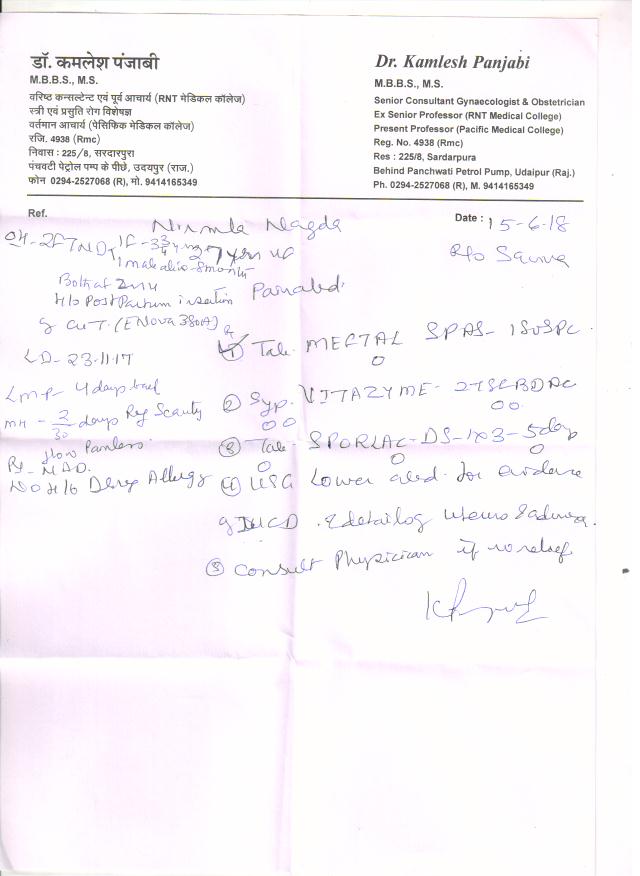 डॉ. कमलेश पंजाबी
M.B.B.S., M.S.
वरिष्ठ कन्सल्टेन्ट एवं पूर्व आचार्य (RNT मेडिकल कॉलेज)
स्त्री एवं प्रसुति रोग विशेषज्ञ
वर्तमान आचार्य (पेसिफिक मेडिकल कॉलेज)
रजि. 4938 (Rmc)
निवास : 225/8, सरदारपुरा
पंचवटी पेट्रोल पम्प के पीछे, उदयपुर (राज.)
फोन 0294-2527068 (R), मो. 9414165349
Dr. Kamlesh Panjabi
M.B.B.S., M.S.
Senior Consultant Gynaecologist & Obstetrician
Ex Senior Professor (RNT Medical College)
Present Professor (Pacific Medical College)
Reg. No. 4938 (Rmc)
Res : 225/8, Sardarpura
Behind Panchwati Petrol Pump, Udaipur (Raj.)
Ph. 0294-2527068 (R), M. 9414165349
Ref.
Date : 15-6-18
Nirmla Nagda
OH - 2FTND
1 male alive - 8 month
Both at
H/o Post Partum insertion
of CuT.
LD - 23-11-17
LMP - 4 days back
MH - 3/30 days Reg Scanty
flow Painless.
No H/o Drug Allergy
Pain abd.
① Tab. MEFTAL SPAS-
② Syp. VITAZYME -
③ Tab. SPORLAC-DS-1x3-5day
④ USG Lower abd. for evidence
of IUCD & detail of uterus & adnexa.
⑤ Consult Physician if no relief